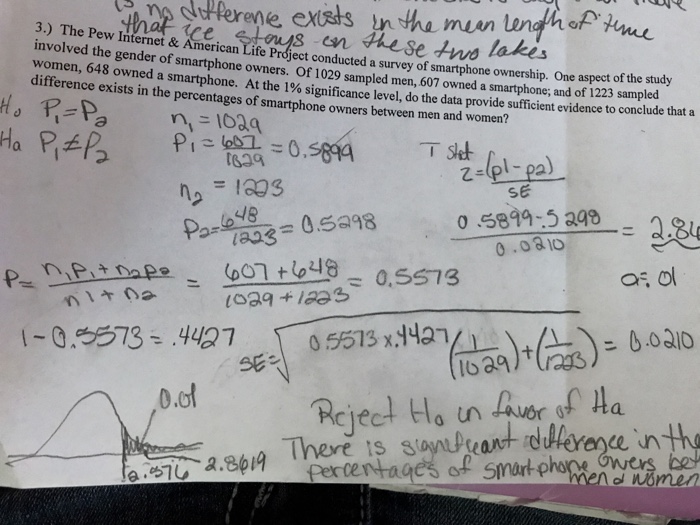 is no difference exists in the mean length of time
that ice stays in these two lakes
3.) The Pew Internet & American Life Project conducted a survey of smartphone ownership. One aspect of the study
involved the gender of smartphone owners. Of 1029 sampled men, 607 owned a smartphone; and of 1223 sampled
women, 648 owned a smartphone. At the 1% significance level, do the data provide sufficient evidence to conclude that a
difference exists in the percentages of smartphone owners between men and women?
Ho P₁=P₂
Ha P₁≠P₂
n₁ = 1029
P₁ = 607/1029 = 0.5899
n₂ = 1223
P₂ = 648/1223 = 0.5298
T Stat
z = (p1-p2)/SE
0.5899-.5298/0.0210 = 2.86
a=.01
P = n₁P₁+n₂P₂/n1+n2 = 607+648/1029+1223 = 0.5573
1-0.5573 = .4427
SE = √0.5573x.4427(1/1029)+(1/1223) = 0.0210
0.01
2.576 2.8619
Reject Ho in favor of Ha
There is significant difference in the
percentages of smartphone owers bet
men & women